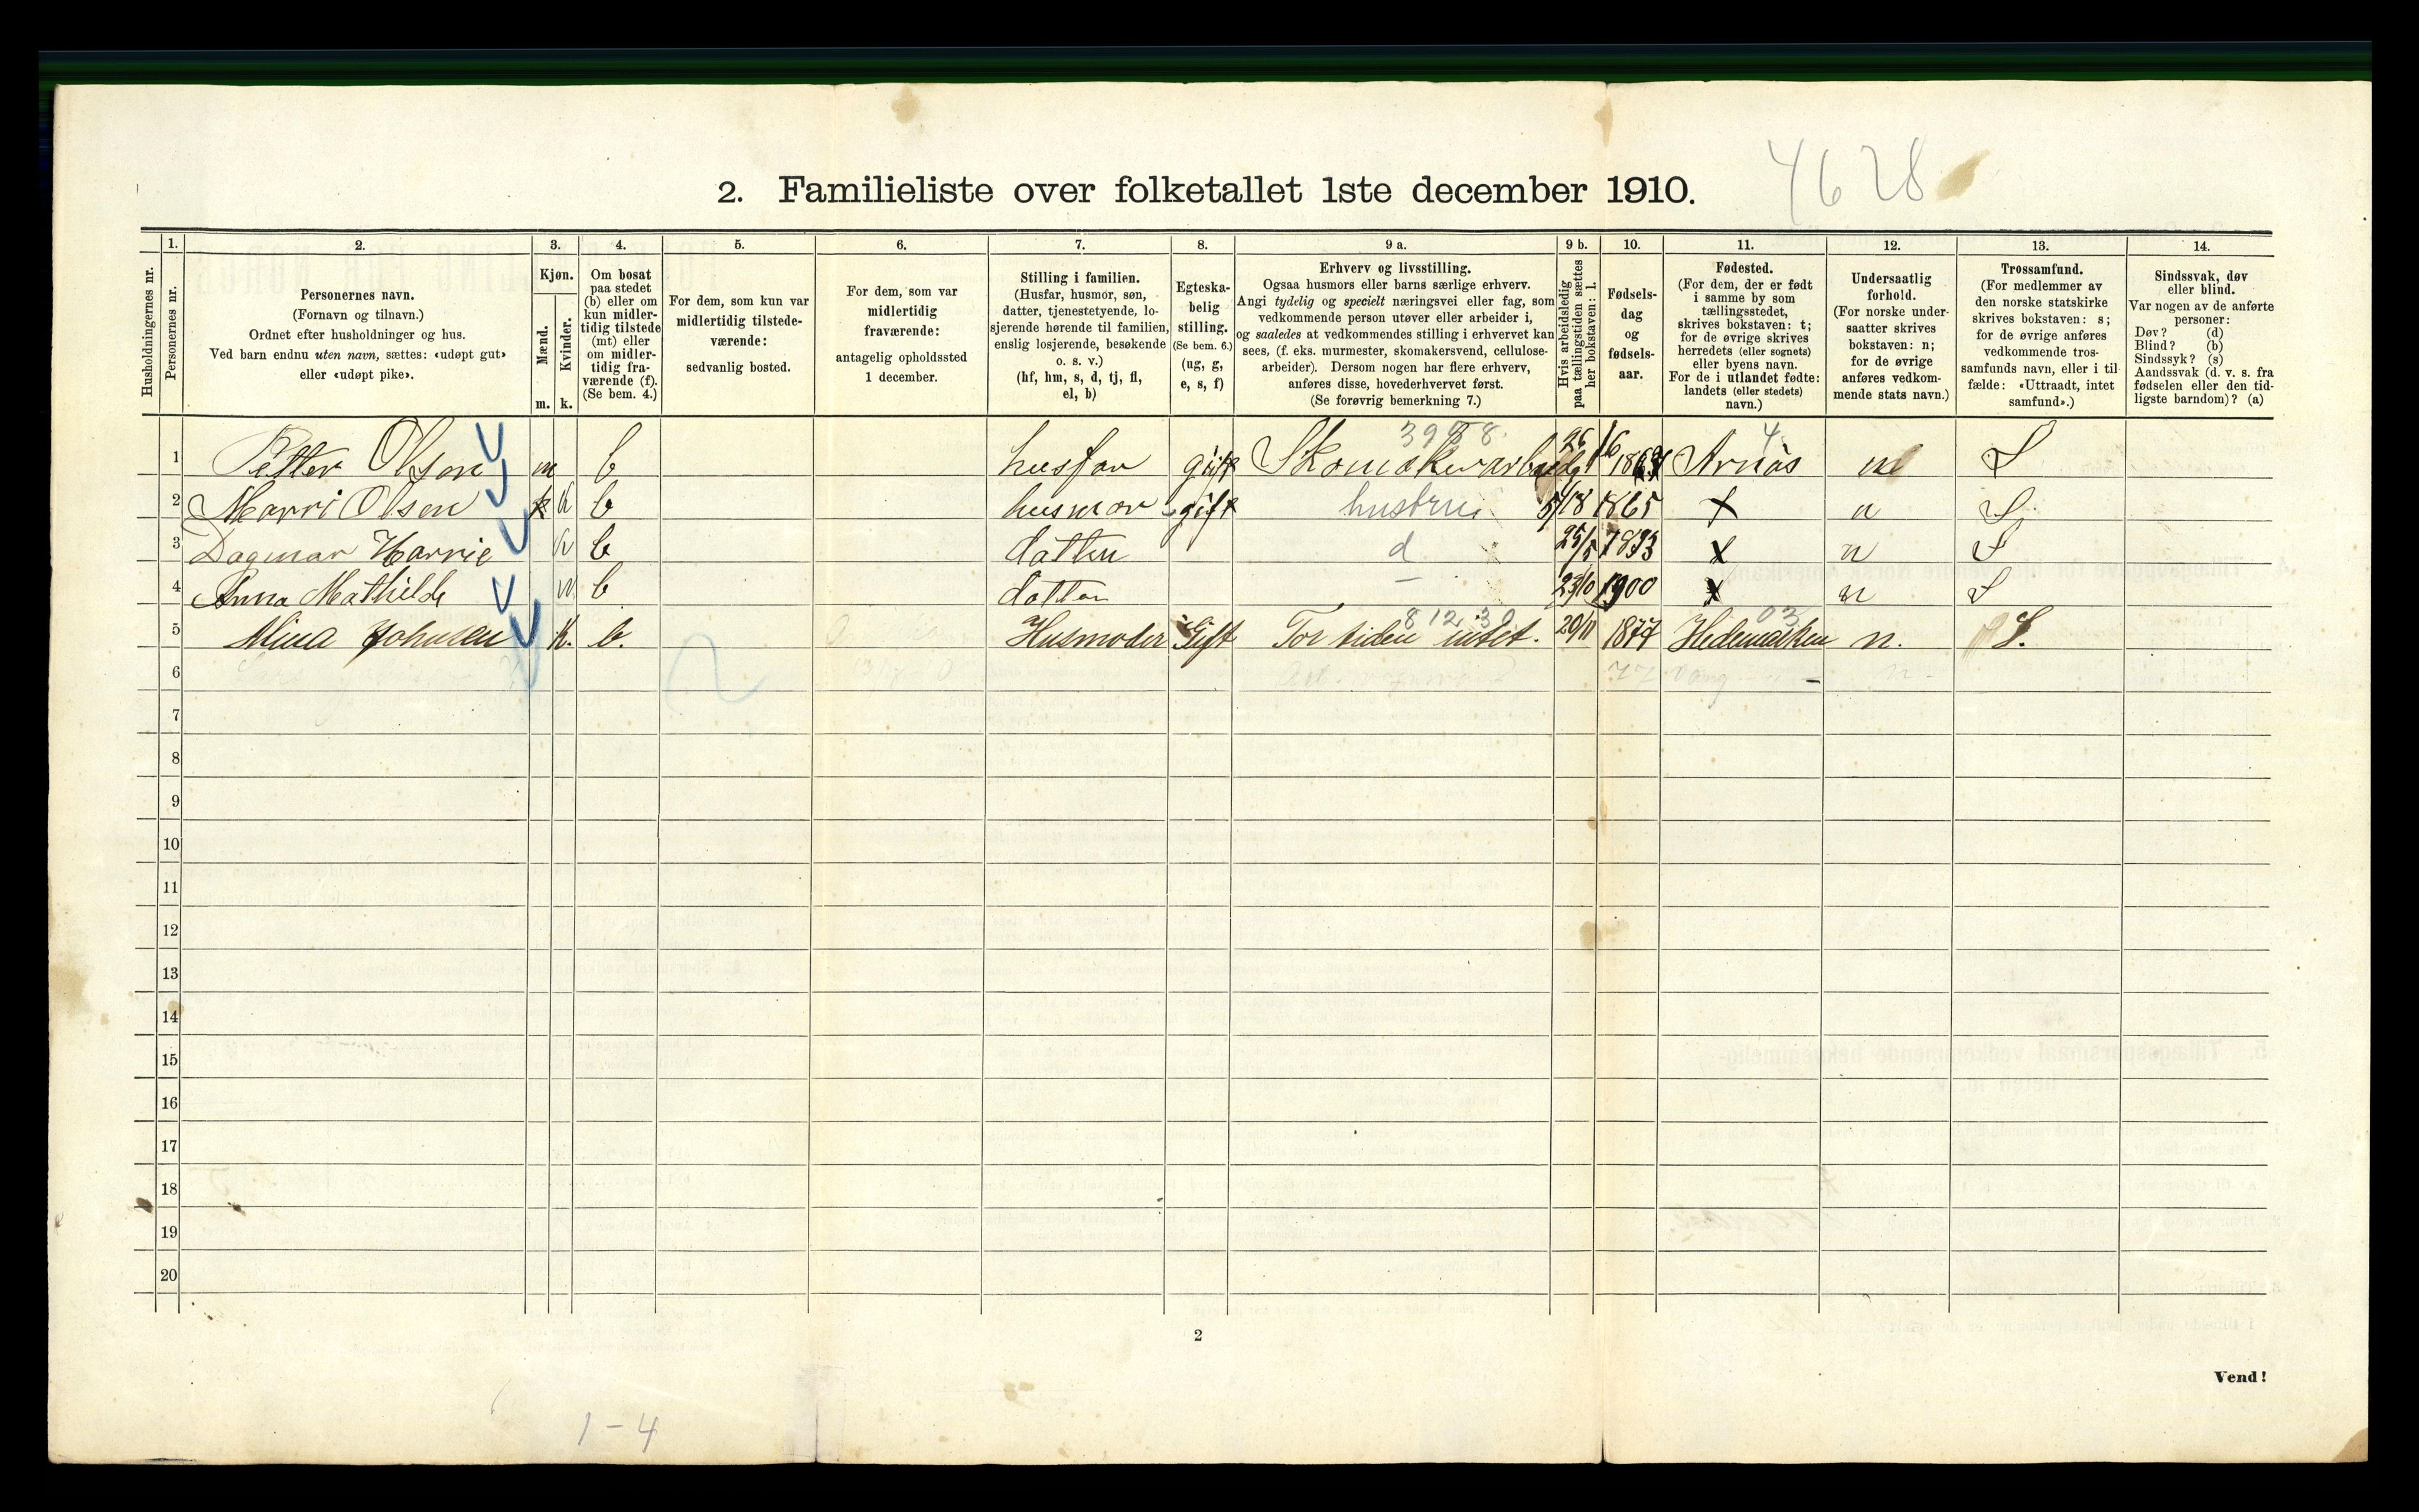 4628
2. Familieliste over folketallet 1ste december 1910.
Husholdningernes nr.
1. Personernes nr.
2. Personernes navn.
(Fornavn og tilnavn.)
Ordnet efter husholdninger og hus.
Ved barn endnu uten navn, sættes: «udøpt gut»
eller «udøpt pike».
3. Kjøn.
Mænd. m.
Kvinder. k.
4. Om bosat
paa stedet
(b) eller om
kun midler-
tidig tilstede
(mt) eller
om midler-
tidig fra-
værende (f).
(Se bem. 4.)
5. For dem, som kun var
midlertidig tilstede-
værende:
sedvanlig bosted.
6. For dem, som var
midlertidig
fraværende:
antagelig opholdssted
1 december.
7. Stilling i familien.
(Husfar, husmor, søn,
datter, tjenestetyende, lo-
sjerende hørende til familien,
enslig losjerende, besøkende
o. s. v.)
(hf, hm, s, d, tj, fl,
el, b)
8. Egteska-
belig
stilling.
(Se bem. 6.)
(ug, g,
e, s, f)
9 a. Erhverv og livsstilling.
Ogsaa husmors eller barns særlige erhverv.
Angi tydelig og specielt næringsvei eller fag, som
vedkommende person utøver eller arbeider i,
og saaledes at vedkommendes stilling i erhvervet kan
sees, (f. eks. murmester, skomakersvend, cellulose-
arbeider). Dersom nogen har flere erhverv,
anføres disse, hovederhvervet først.
(Se forøvrig bemerkning 7.)
9 b. Hvis arbeidsledig
paa tællingstiden sættes
her bokstaven: l.
10. Fødsels-
dag
og
fødsels-
aar.
11. Fødested.
(For dem, der er født
i samme by som
tællingsstedet,
skrives bokstaven: t;
for de øvrige skrives
herredets (eller sognets)
eller byens navn.
For de i utlandet fødte:
landets (eller stedets)
navn.)
12. Undersaatlig
forhold.
(For norske under-
saatter skrives
bokstaven: n;
for de øvrige
anføres vedkom-
mende stats navn.)
13. Trossamfund.
(For medlemmer av
den norske statskirke
skrives bokstaven: s;
for de øvrige anføres
vedkommende tros-
samfunds navn, eller i til-
fælde: «Uttraadt, intet
samfund».)
14. Sindssvak, døv
eller blind.
Var nogen av de anførte
personer:
Døv? (d)
Blind? (b)
Sindssyk? (s)
Aandssvak (d. v. s. fra
fødselen eller den tid-
ligste barndom)? (a)
1 Petter Olsen m b husfar gift Skomakerarbeid Arnäs n S
2 Marri Olsen k b husmor gift hustru 5/8 1865 n S
3 Dagmar Harrie k b datter d 25/5 1893 n S
4 Anna Mathilde b datter 23/10 1900 n S
5 Mina Johnsen K. b. Husmoder Gift For tiden intet. 20/11 1877 Hedemarken n. S.
6
7
8
9
10
11
12
13
14
15
16
17
18
19
20
2
Vend!
1-4